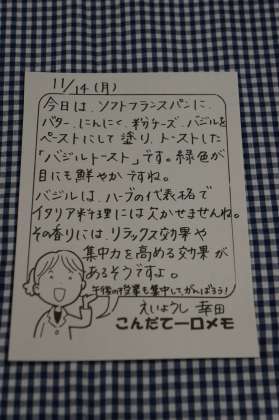 11/14(月)
今日は、ソフトフランスパンに、
バター、にんにく、粉チーズ、バジルを
ペーストにして塗り、トーストした
「バジルトースト」です。緑色が
目にも鮮やかですね。
バジルは、ハーブの代表格で
イタリア料理には欠かせませんね。
その香りには、リラックス効果や
集中力を高める効果が
あるそうですよ。
午後の授業も集中してがんばろう!
えいようし 幸田
こんだて一口メモ